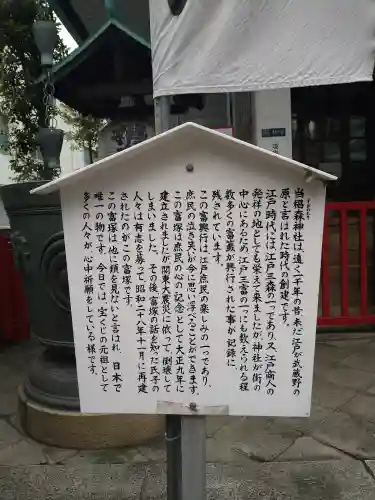 すぎのもり
当椙森神社は、遠く一千年の昔未だ江戸が武蔵野の
原と言はれた時代の創建です。
江戸時代には江戸三森の一つであり又、江戸商人の
発祥の地としても栄えて来ましたが、神社が街の
中心にあるため江戸三富の一つにも数えられる程
数多くの富籤が興行された事が記録に
残されています。
この富興行は江戸庶民の楽しみの一つであり、
庶民の泣き笑いが今に思い浮べることができます。
この富塚は庶民の心の記念として大正九年に
建立されましたが関東大震災に依って倒壊して
しまいました。その後、富塚の話を知った氏子の
人々は有志を募って、昭和二十八年十一月に再建
されたのがこの富塚です。
この富塚は他に類を見ないと言はれ、日本で
唯一の物です。今日では、宝くじの元祖として
多くの人々が、心中祈願をしている様です。